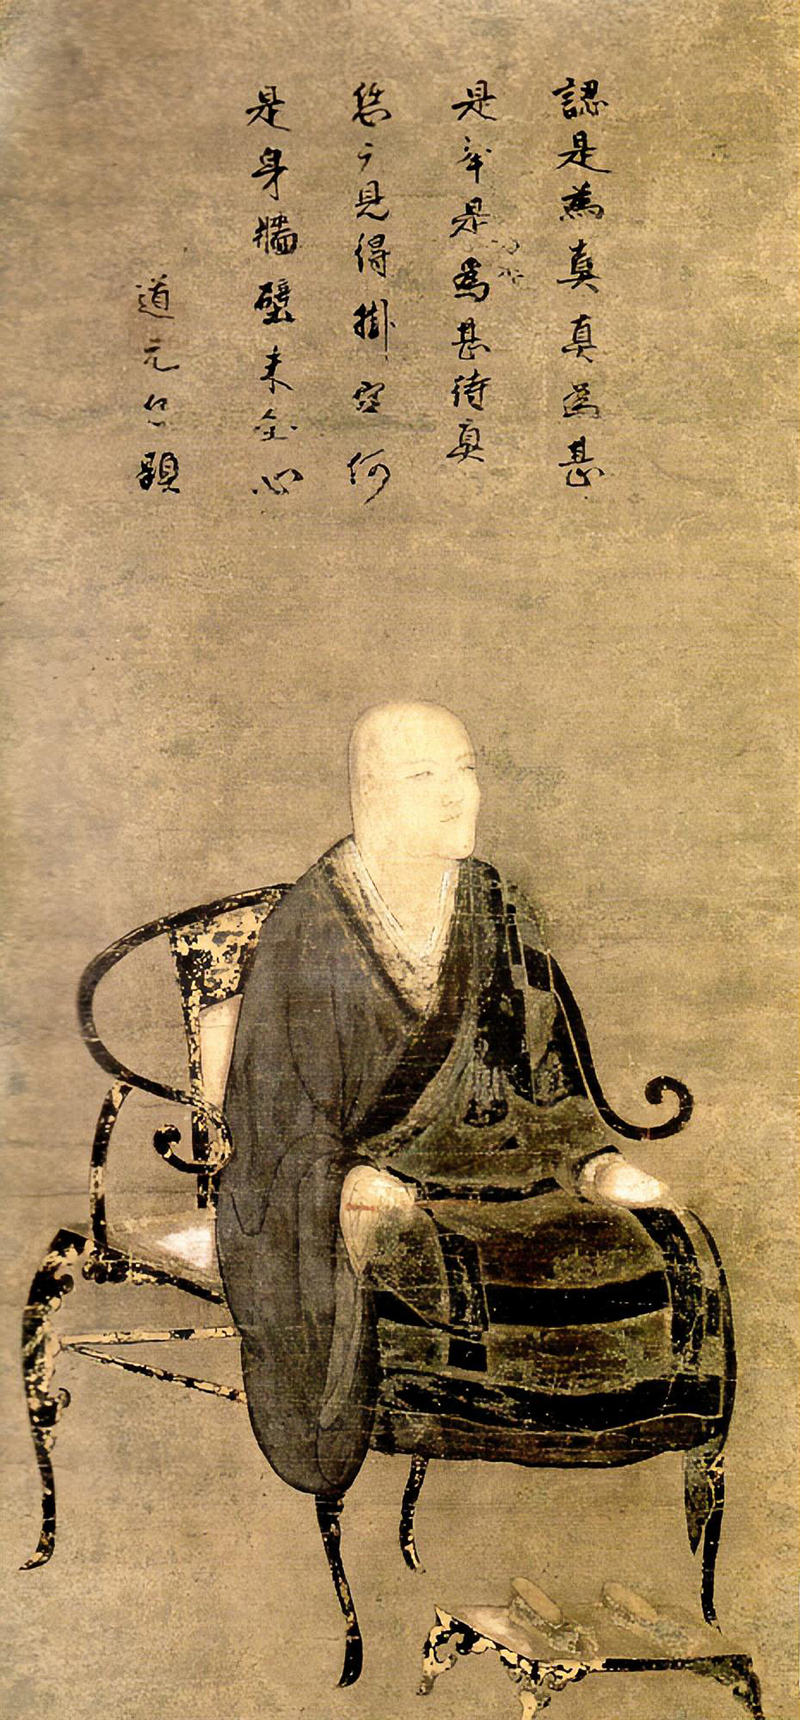 認是為真真為甚
是是為甚待真
恁广見得掛空何
是身牆壁未全心
道元自題